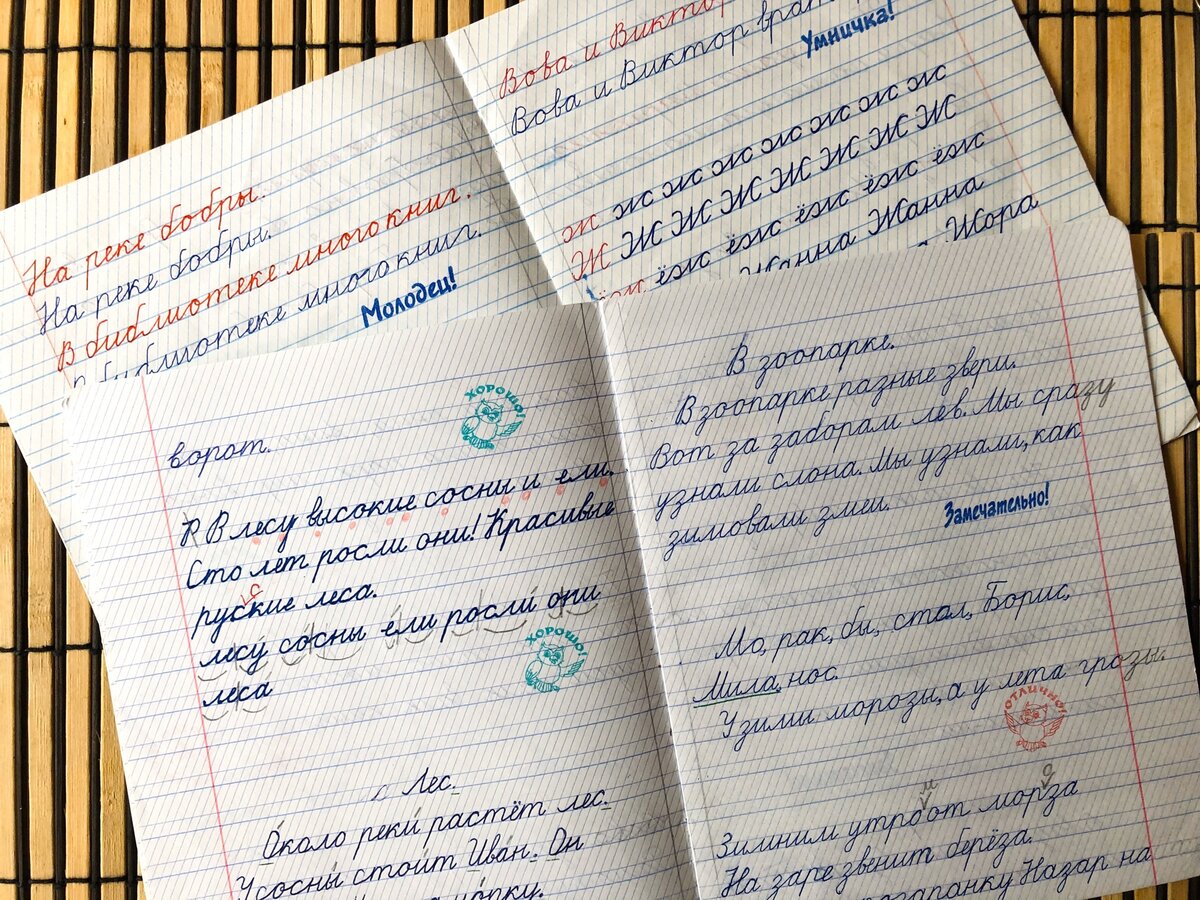 На реке бобры.
На реке бобры.
В библиотеке много книг.
В библиотеке много книг.
Молодец!
Вова и Виктор
Вова и Виктор
Умничка!
ж ж ж ж ж ж ж ж
Ж Ж Ж Ж Ж Ж Ж Ж
ёж ёж ёж ёж ёж ёж
Жанна Жанна
Жора
ХОРОШО!
ворот.
В лесу высокие сосны и ели.
Сто лет росли они! Красивые
руские леса.
с
лесу́ со́сны е́ли росли́ они
леса́
ХОРОШО!
Лес.
О́коло реки́ растёт лес.
У сосны́ стои́т Ива́н. Он
В зоопарке.
В зоопарке разные звери.
Вот за заборам лев. Мы сразу
узнали слона. Мы узнали, как
зимовали змеи.
Замечательно!
Мо, рак, бы, стал, Борис,
Мила, нос.
У зимы морозы, а у лета грозы.
ОТЛИЧНО!
м о
Зимним утроот морза
На заре звенит берёза.
Назар на